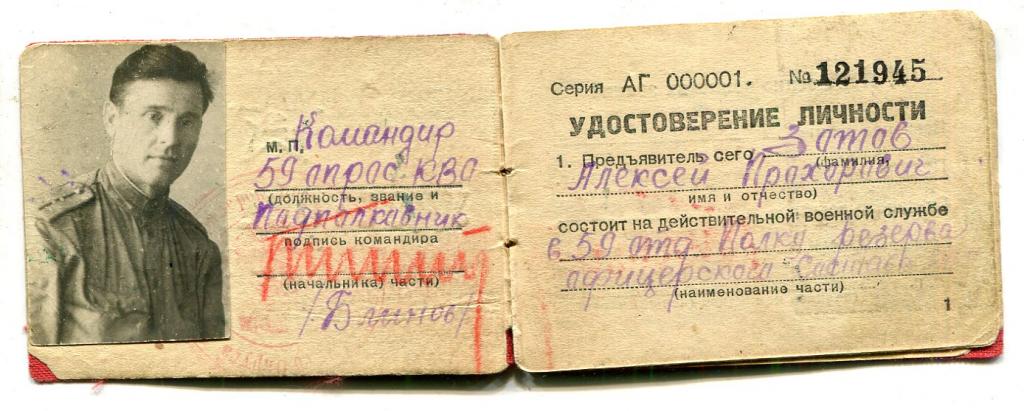 м. п. Командир
59 опрос КВО
(должность, звание и
Подполковник
подпись командира
(начальника) части)
/Блинов/
Серия АГ 000001. № 121945
УДОСТОВЕРЕНИЕ ЛИЧНОСТИ
1. Предъявитель сего Зотов
(фамилия,
Алексей Прохорович
имя и отчество)
состоит на действительной военной службе
в 59 отд Полку резерва
офицерского Состава
(наименование части)
1